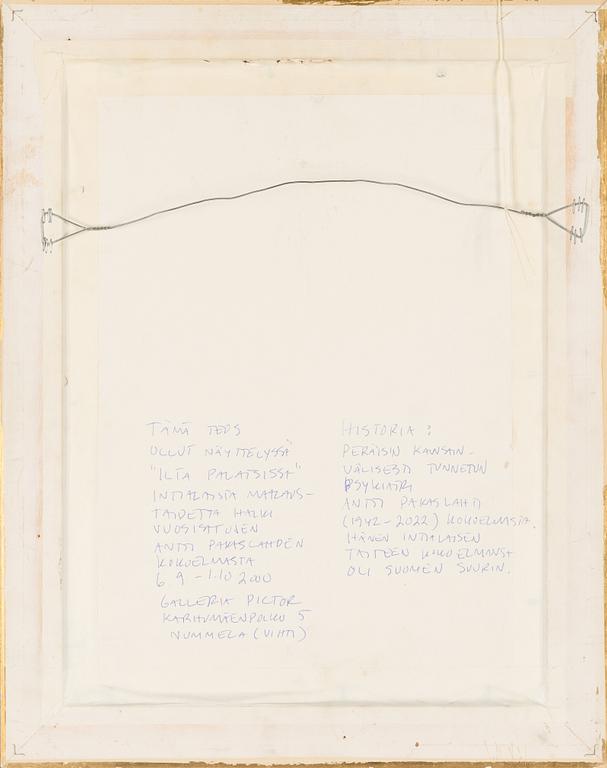 TÄMÄ TEOS
OLLUT NÄYTTELYSSÄ
"ILTA PALATSISSA"
INTIALAISTA MAALAUS-
TAIDETTA HALKI
VUOSISATOJEN
ANTTI PAKASLAHDEN
KOKOELMASTA
6.9 - 1.10 2000
GALLERIA PICTOR
KARHUMÄENPOLKU 5
NUMMELA (VIHTI)
HISTORIA :
PERÄISIN KANSAIN-
VÄLISESTI TUNNETUN
PSYKIATRI
ANTTI PAKASLAHTI
(1942-2022) KOKOELMASTA.
HÄNEN INTIALAISEN
TAITEEN KOKOELMANSA
OLI SUOMEN SUURIN.